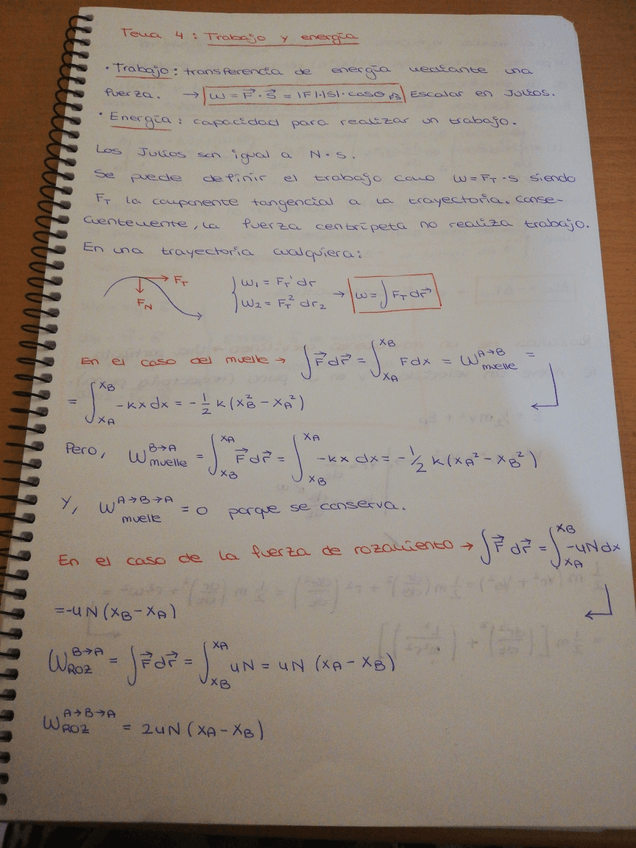 Tema 4: Trabajo y energía
· Trabajo: transferencia de energía mediante una
fuerza. → W = F⃗ · S⃗ = |F|·|S|·cosα,β Escalar en Julios.
· Energía: capacidad para realizar un trabajo.
Los Julios son igual a N·s.
Se puede definir el trabajo como W=F_T·s siendo
F_T la componente tangencial a la trayectoria. Conse-
cuentemente, la fuerza centrípeta no realiza trabajo.
En una trayectoria cualquiera:
F_T
F_N
W₁ = F_T¹ dr
W₂ = F_T² dr₂ → W = ∫ F_T dr⃗
En el caso del muelle → ∫ F⃗ dr⃗ = ∫_{X_A}^{X_B} F dx = W_{muelle}^{A→B} =
= ∫_{X_A}^{X_B} -kx dx = -1/2 k (x_B² - x_A²)
Pero, W_{muelle}^{B→A} = ∫_{X_B}^{X_A} F⃗ dr⃗ = ∫_{X_B}^{X_A} -kx dx = -1/2 k (x_A² - x_B²)
Y, W_{muelle}^{A→B→A} = 0 porque se conserva.
En el caso de la fuerza de rozamiento → ∫ F⃗ dr⃗ = ∫_{X_A}^{X_B} -uN dx
= -uN (x_B - x_A)
W_{ROZ}^{B→A} = ∫ F⃗ dr⃗ = ∫_{X_B}^{X_A} uN = uN (x_A - x_B)
W_{ROZ}^{A→B→A} = 2uN (x_A - x_B)